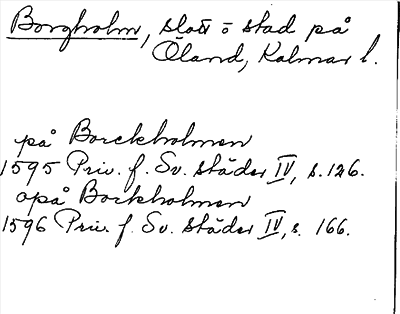 Borgholm, slott o stad på
Öland, Kalmar l.
på Borckholmen
1595 Priv. f. Sv. städer IV, s. 126.
opå Borkholmen
1596 Priv. f. Sv. städer IV, s. 166.